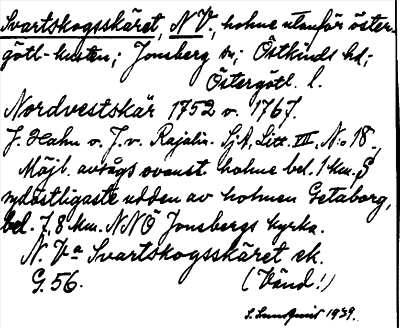 Svartskogsskäret, N V., holme utanför öster-
götl-kusten; Jonsberg sn; Östkinds hd;
Östergötl. l.
Nordvestskär 1752 v. 1767.
J. Hahn v. J. v. Rajalin. SjA, Litt. III, No 18.
Möjl. avsågs ovanst. holme bel. 1 km. S
nydostligaste udden av holmen Getaborg,
bel. 7,8 km. NNO Jonsbergs kyrka.
N. Va Svartskogsskäret ek.
G. 56. (Vänd!)
S. Lundqvist 1939.